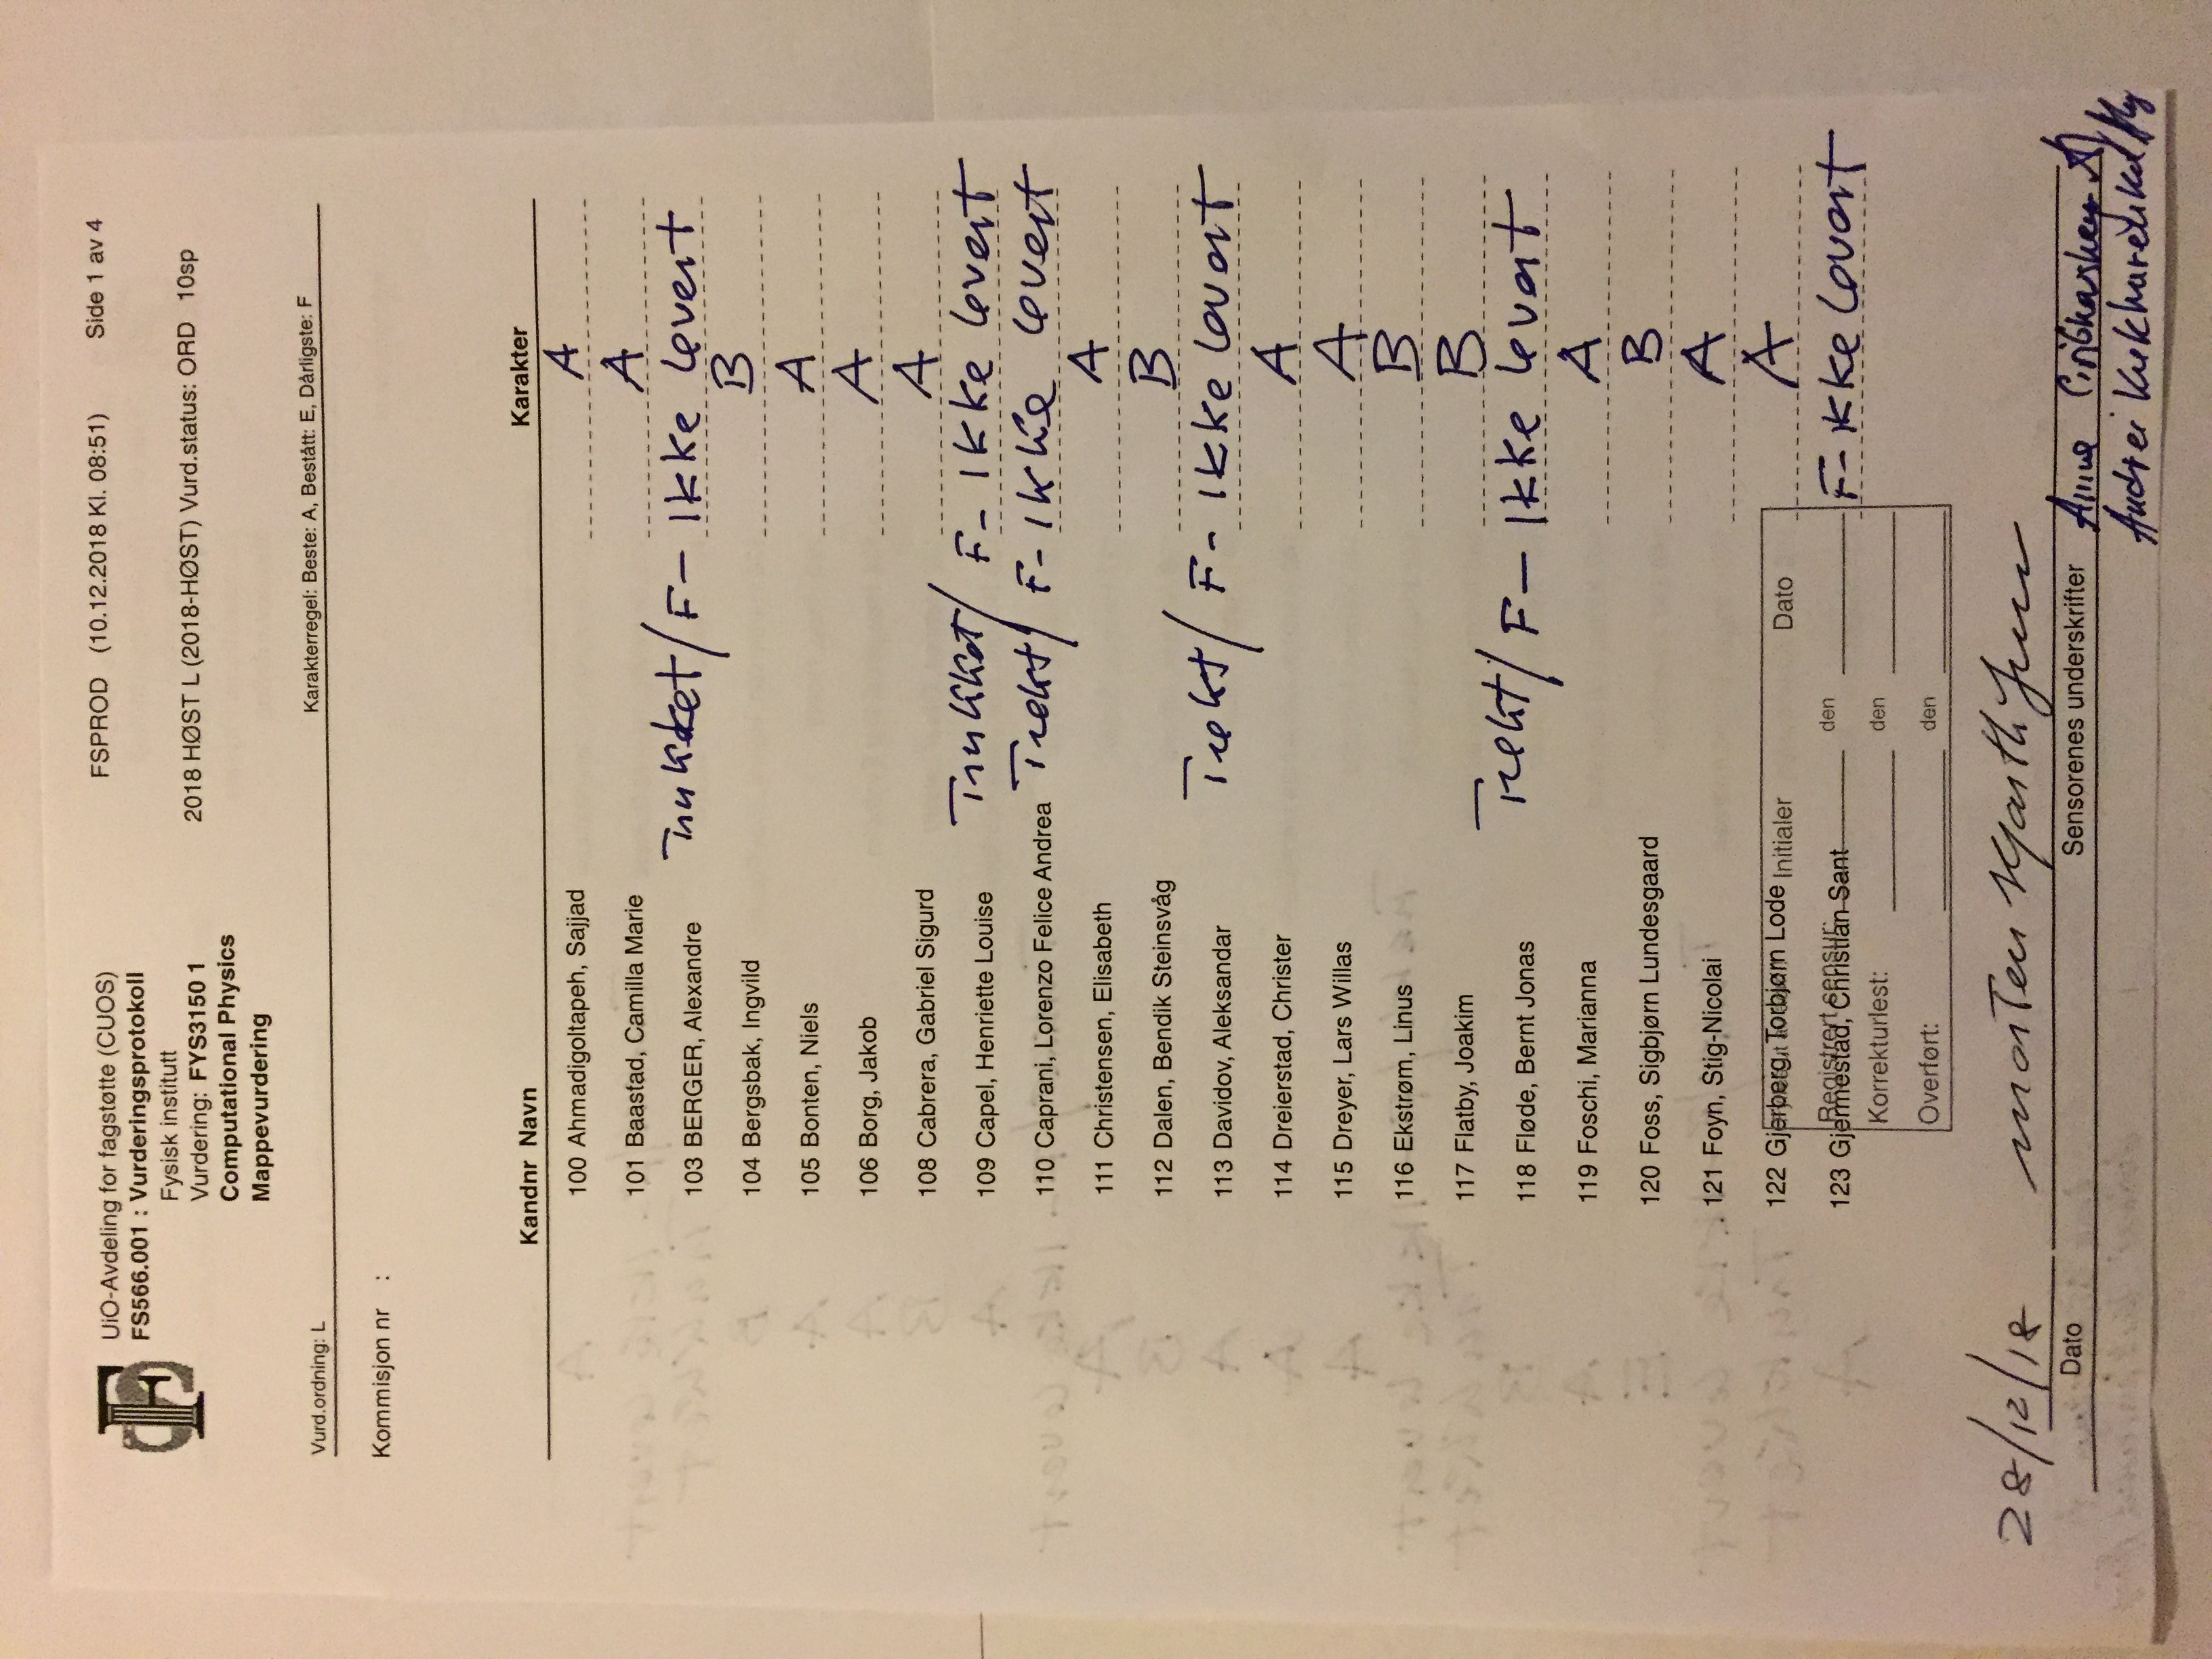 UiO-Avdeling for fagstøtte (CUOS) FSPROD (10.12.2018 Kl. 08:51) Side 1 av 4
FS566.001 : Vurderingsprotokoll
Fysisk institutt
Vurdering: FYS3150 1 2018 HØST L (2018-HØST) Vurd.status: ORD 10sp
Computational Physics
Mappevurdering
Vurd.ordning: L Karakterregel: Beste: A, Bestått: E, Dårligste: F
Kommisjon nr :
Kandnr Navn Karakter
100 Ahmadigoltapeh, Sajjad A
101 Baastad, Camilla Marie A
103 BERGER, Alexandre Trukket/F- Ikke levert
104 Bergsbak, Ingvild B
105 Bonten, Niels A
106 Borg, Jakob A
108 Cabrera, Gabriel Sigurd A
109 Capel, Henriette Louise Trukket/ F- Ikke levert
110 Caprani, Lorenzo Felice Andrea Trekt/ F- Ikke levert
111 Christensen, Elisabeth A
112 Dalen, Bendik Steinsvåg B
113 Davidov, Aleksandar Trekt/ F- Ikke levert
114 Dreierstad, Christer A
115 Dreyer, Lars Willas A
116 Ekstrøm, Linus B
117 Flatby, Joakim B
118 Fløde, Bernt Jonas Trekt/ F- Ikke levert
119 Foschi, Marianna A
120 Foss, Sigbjørn Lundesgaard B
121 Foyn, Stig-Nicolai A
122 Gjerberg, Torbjørn Lode A
Initialer Dato
Registrert sensur: den
123 Gjermestad, Christian Sant F- Ikke levert
Korrekturlest: den
Overført: den
28/12/18 Morten Hjorth-Jensen
Dato Sensorenes underskrifter
Andrei Kukharenko